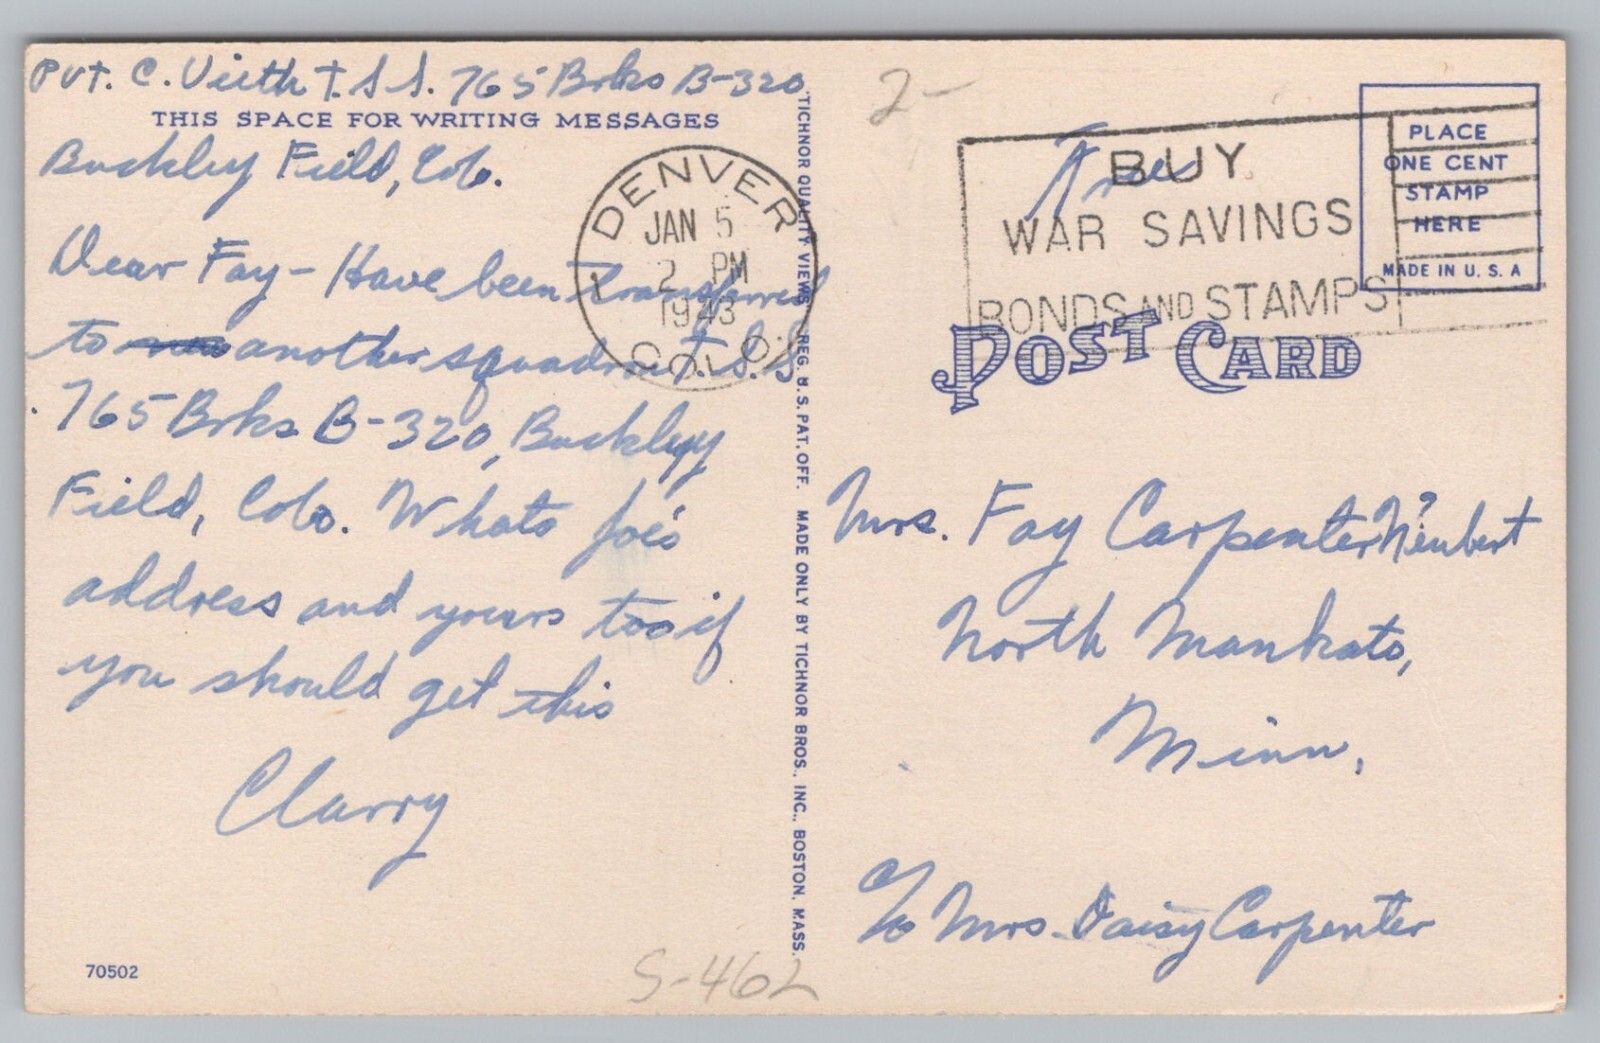 Pvt. C. Vieth T.S.S. 765 Brks B-320
THIS SPACE FOR WRITING MESSAGES
Buckley Field, Colo.
Dear Fay - Have been transferred
to another squadron T.S.S
765 Brks B-320, Buckley
Field, Colo. Whats Joe's
address and yours too if
you should get this
Clarry
70502
S-462
DENVER
JAN 5
2 PM
1943
COLO.
TICHNOR QUALITY VIEWS REG. U.S. PAT. OFF. MADE ONLY BY TICHNOR BROS., INC., BOSTON, MASS.
2-
Free
BUY
WAR SAVINGS
BONDS AND STAMPS
PLACE
ONE CENT
STAMP
HERE
MADE IN U.S.A
POST CARD
Mrs. Fay Carpenter Neubert
North Mankato,
Minn.
c/o Mrs. Daisy Carpenter